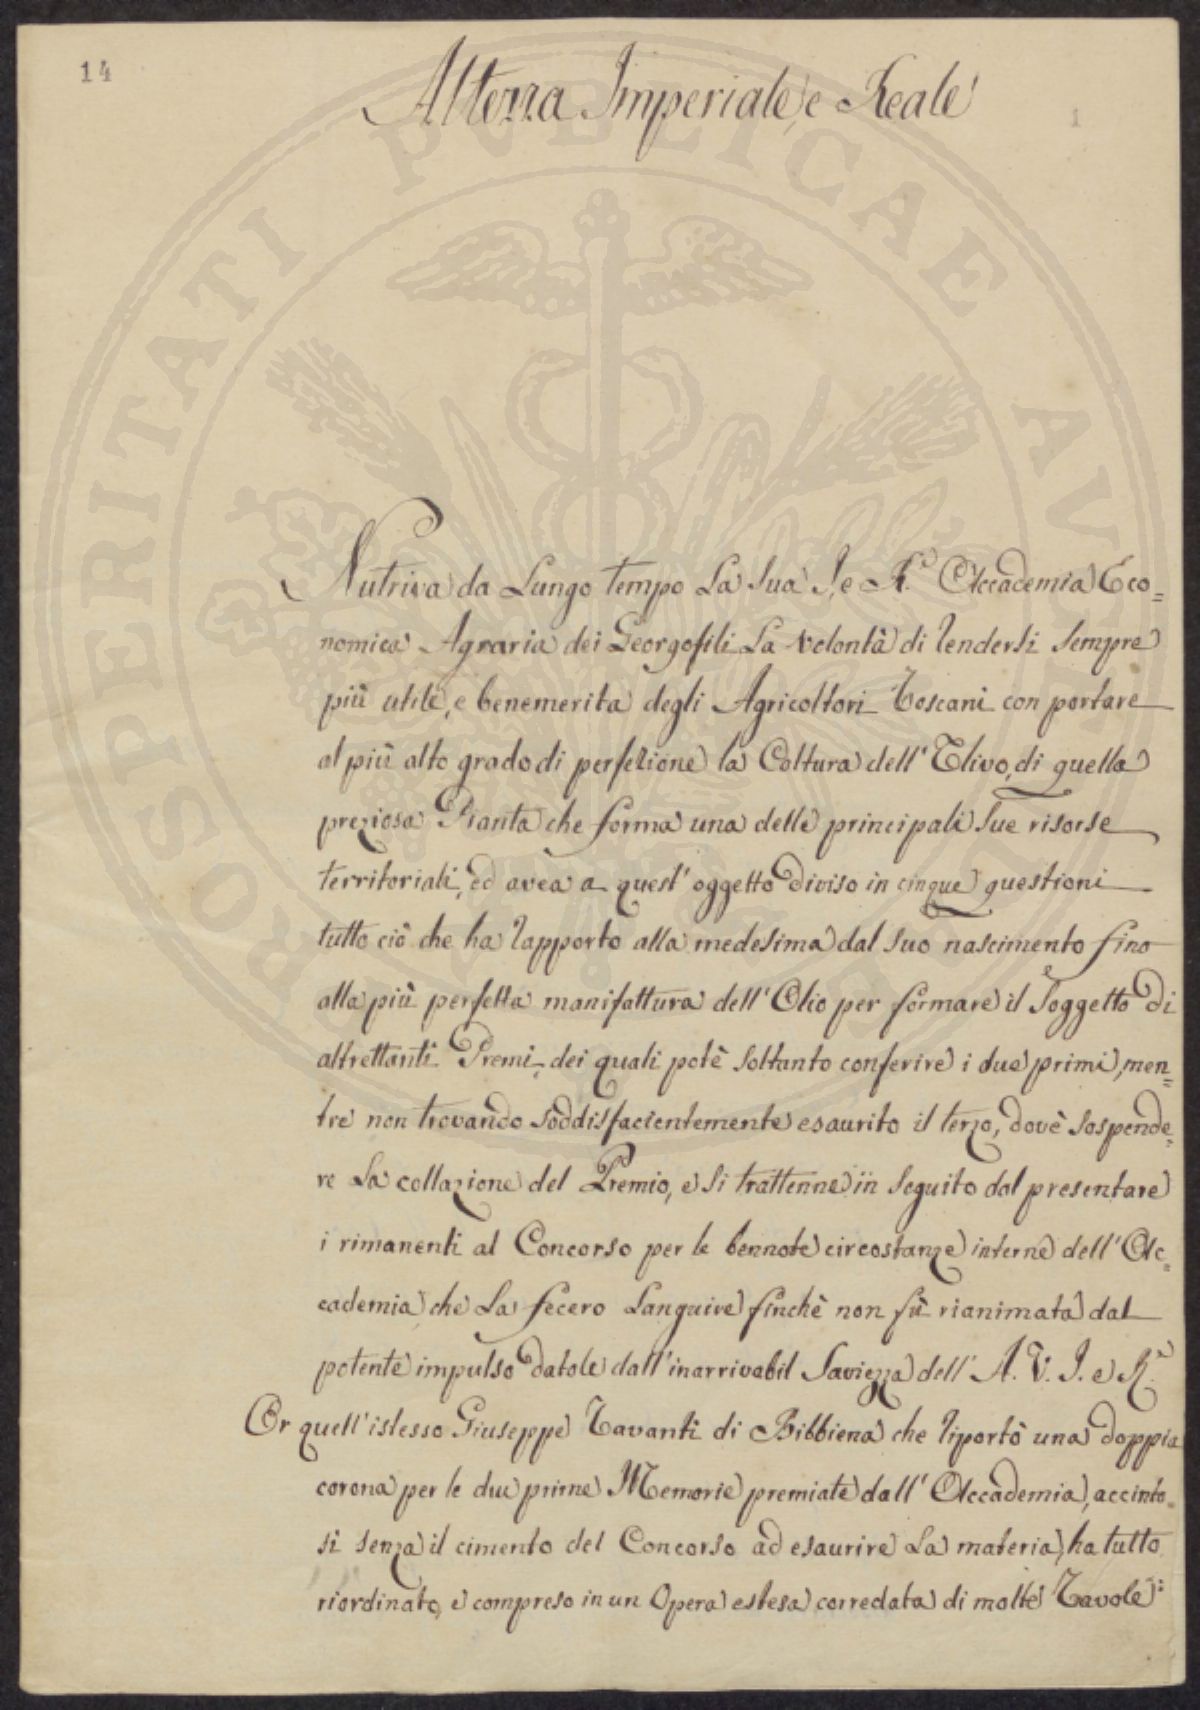 14
Altezza Imperiale, e Reale
1
Nutriva da Lungo tempo La Sua I. e R. Accademia Eco=
nomica Agraria dei Georgofili La volontà di rendersi sempre
più utile, e benemerita degli Agricoltori Toscani con portare
al più alto grado di perfezione la Coltura dell' Ulivo, di quella
preziosa Pianta che forma una delle principali Sue risorse
territoriali, ed avea a quest' oggetto diviso in cinque questioni
tutto ciò che ha rapporto alla medesima dal suo nascimento fino
alla più perfetta manifattura dell' Olio per formare il Soggetto di
altrettanti Premi, dei quali potè soltanto conferire i due primi, men=
tre non trovando soddisfacientemente esaurito il terzo, dovè sospende=
re La collazione del Premio, e si trattenne in seguito dal presentare
i rimanenti al Concorso per le bennote circostanze interne dell' Ac=
cademia che La fecero Languire finchè non fù rianimata dal
potente impulso datole dall' inarrivabil Saviezza dell' A. V. I. e R.
Or quell' istesso Giuseppe Tavanti di Bibbiena che riportò una doppia
corona per le due prime Memorie premiate dall' Accademia, accinto=
si senza il cimento del Concorso ad esaurire La materia, ha tutto
riordinato, e compreso in un Opera estesa corredata di molte Tavole:
PROSPERITATI PUBLICAE AV